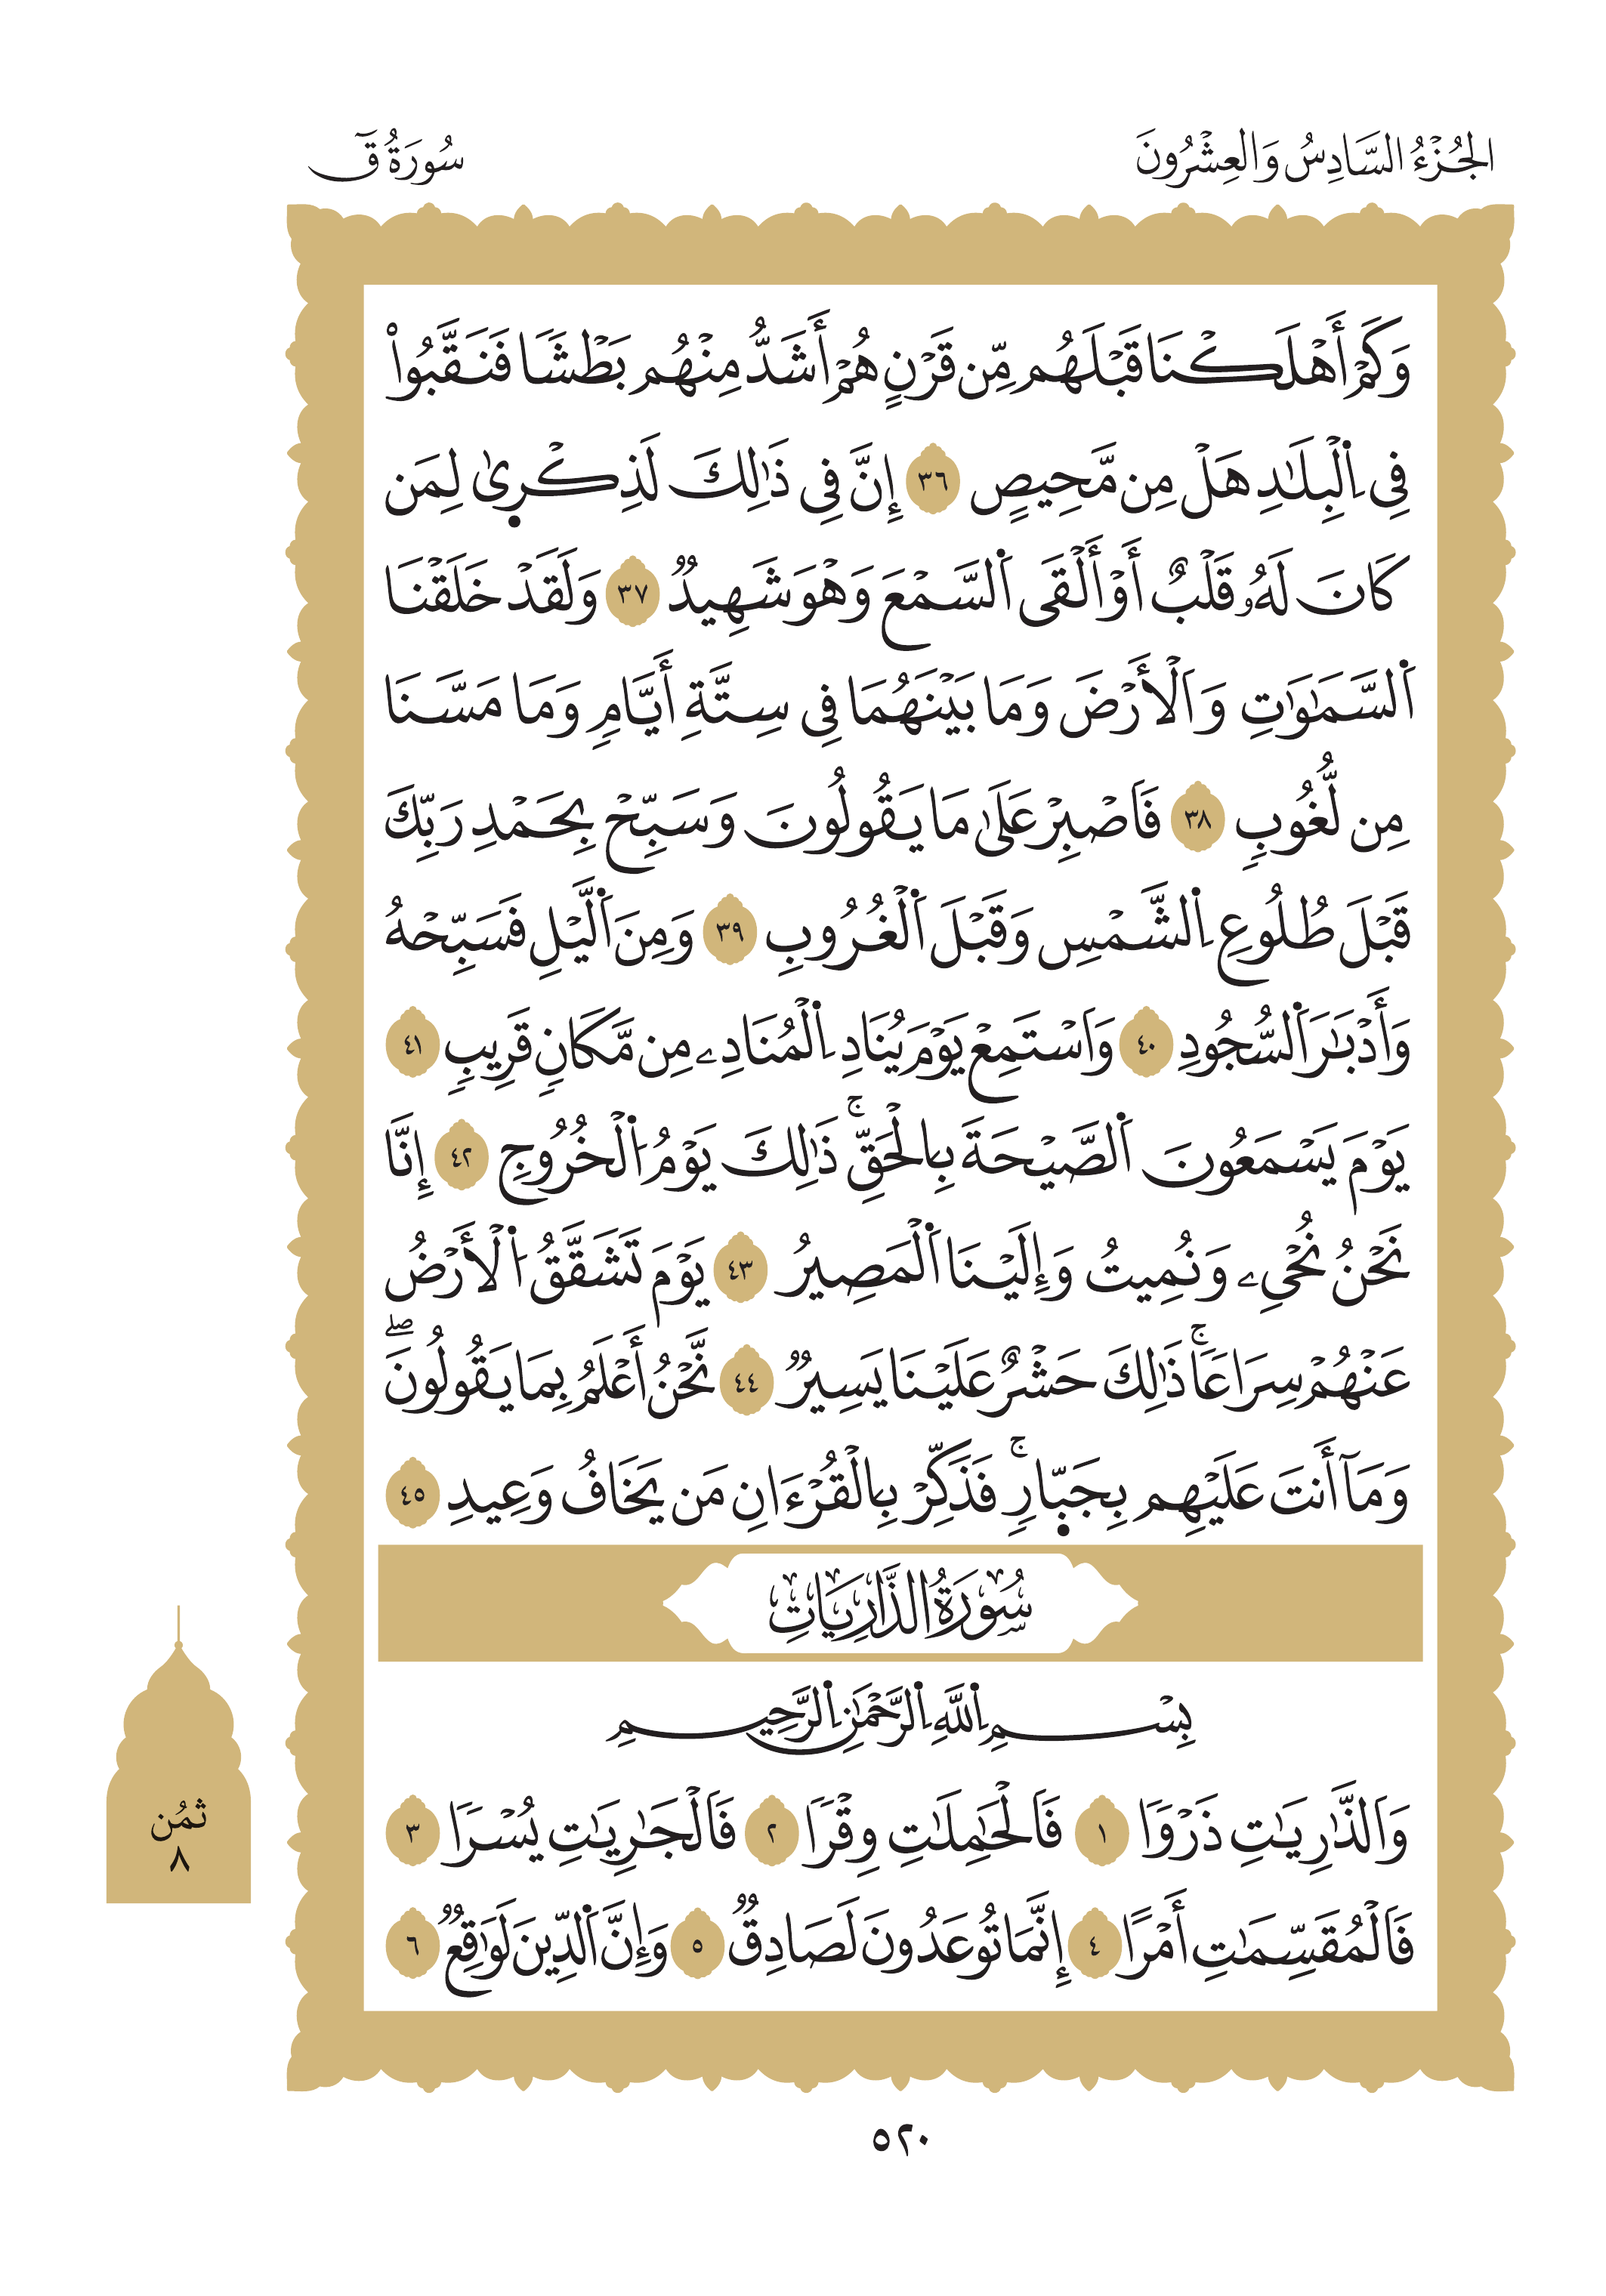 الجُزْءُ السَّادِسُ وَالعِشْرُونَ
سُورَةُ قٓ
وَكَمْ أَهْلَكْنَا قَبْلَهُم مِّن قَرْنٍ هُمْ أَشَدُّ مِنْهُم بَطْشٗا فَنَقَّبُواْ
فِي اِ۬لْبِلَٰدِ هَلْ مِن مَّحِيصٍ ٣٦ إِنَّ فِي ذَٰلِكَ لَذِكْر۪ىٰ لِمَن
كَانَ لَهُۥ قَلْبٌ أَوْ أَلْقَى اَ۬لسَّمْعَ وَهْوَ شَهِيدٞ ٣٧ وَلَقَدْ خَلَقْنَا
اَ۬لسَّمَٰوَٰتِ وَالْأَرْضَ وَمَا بَيْنَهُمَا فِي سِتَّةِ أَيَّامٖ وَمَا مَسَّنَا
مِن لُّغُوبٖ ٣٨ فَاصْبِرْ عَلَىٰ مَا يَقُولُونَ وَسَبِّحْ بِحَمْدِ رَبِّكَ
قَبْلَ طُلُوعِ اِ۬لشَّمْسِ وَقَبْلَ اَ۬لْغُرُوبِ ٣٩ وَمِنَ اَ۬لَّيْلِ فَسَبِّحْهُ
وَأَدْبَٰرَ اَ۬لسُّجُودِ ٤٠ وَاسْتَمِعْ يَوْمَ يُنَادِ اِ۬لْمُنَادِۦ مِن مَّكَانٖ قَرِيبٖ ٤١
يَوْمَ يَسْمَعُونَ اَ۬لصَّيْحَةَ بِالْحَقِّۚ ذَٰلِكَ يَوْمُ اُ۬لْخُرُوجِ ٤٢ إِنَّا
نَحْنُ نُحْيِۦ وَنُمِيتُ وَإِلَيْنَا اَ۬لْمَصِيرُ ٤٣ يَوْمَ تَشَقَّقُ اُ۬لْأَرْضُ
عَنْهُمْ سِرَاعٗاۚ ذَٰلِكَ حَشْرٌ عَلَيْنَا يَسِيرٞ ٤٤ نَّحْنُ أَعْلَمُ بِمَا يَقُولُونَۖ
وَمَآ أَنتَ عَلَيْهِم بِجَبّ۪ارٖۚ فَذَكِّرْ بِالْقُرْءَانِ مَن يَخَافُ وَعِيدِ ٤٥
سُورَةُ الذَّارِيَاتِ
بِسْمِ اِ۬للَّهِ اِ۬لرَّحْمَٰنِ اِ۬لرَّحِيمِ
وَالذَّٰرِيَٰتِ ذَرْوٗا ١ فَالْحَٰمِلَٰتِ وِقْرٗا ٢ فَالْجَٰرِيَٰتِ يُسْرٗا ٣
فَالْمُقَسِّمَٰتِ أَمْرًا ٤ إِنَّمَا تُوعَدُونَ لَصَادِقٞ ٥ وَإِنَّ اَ۬لدِّينَ لَوَٰقِعٞ ٦
ثُمُن
٨
٥٢٠